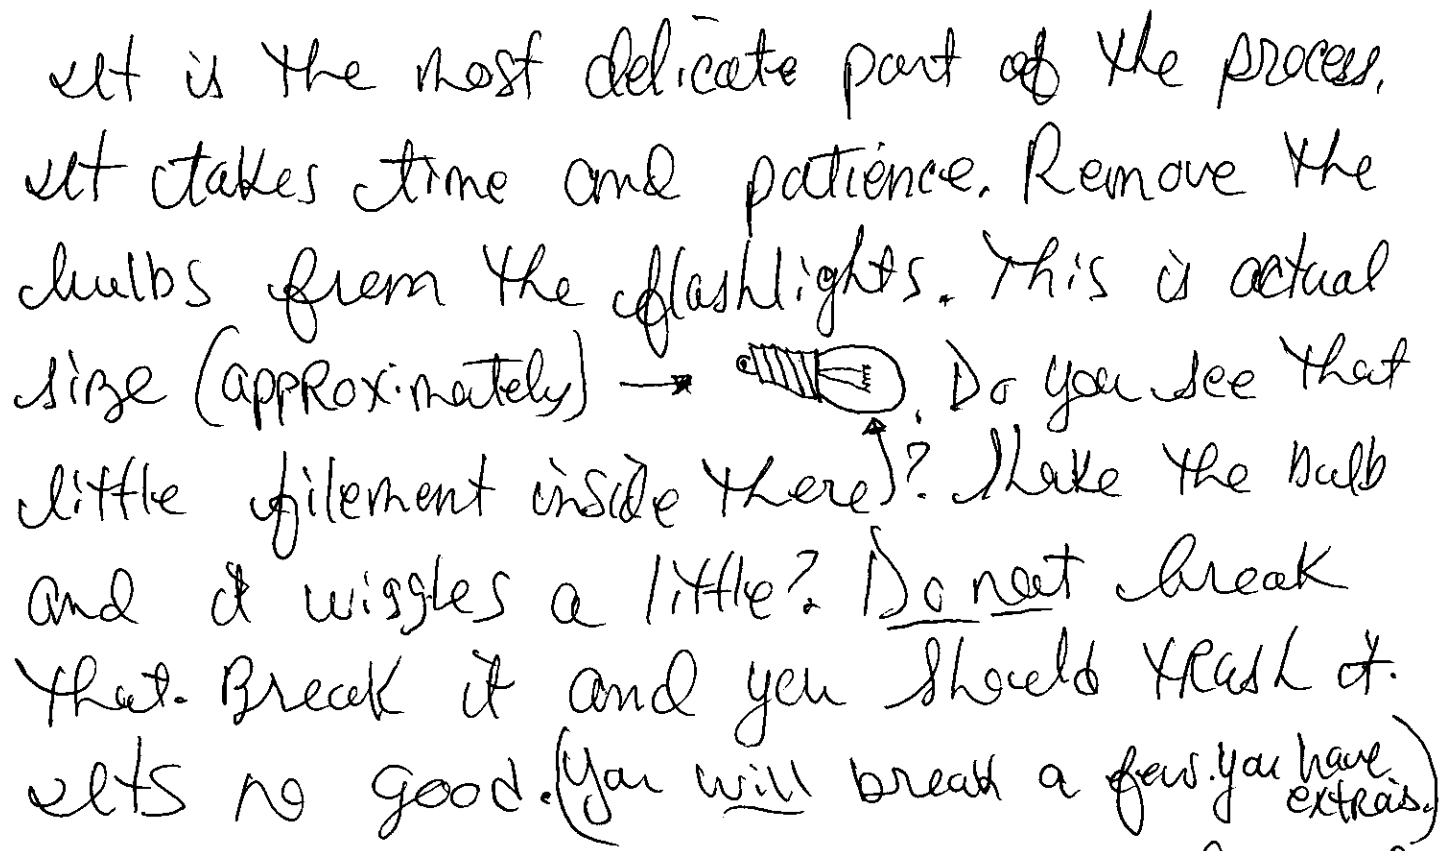 It is the most delicate part of the process.
It takes time and patience. Remove the
bulbs from the flashlights. This is actual
size (approximately) → . Do you see that
little filement inside there? Shake the bulb
and it wiggles a little? Do not break
that. Break it and you should trash it.
Its no good. (You will break a few. You have extras.)